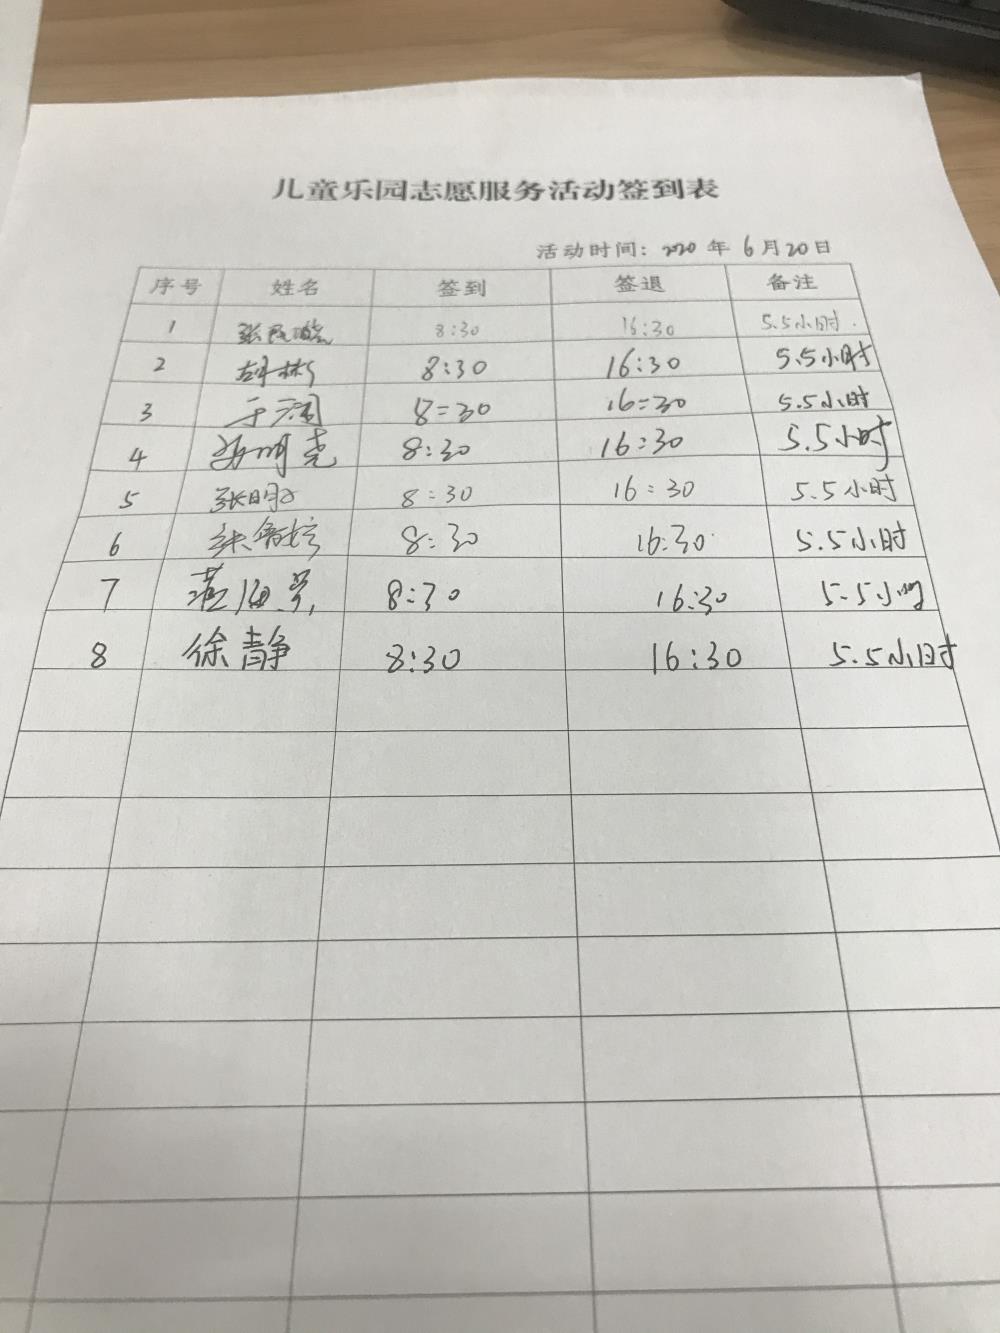 儿童乐园志愿服务活动签到表
活动时间：2020 年 6 月 20 日
序号 姓名 签到 签退 备注
1 8:30 16:30 5.5小时.
2 8:30 16:30 5.5小时
3 8=30 16=30 5.5小时
4 8:30 16:30 5.5小时
5 8:30 16:30 5.5小时
6 8:30 16:30 5.5小时
7 8:30 16:30 5.5小时
8 徐静 8:30 16:30 5.5小时